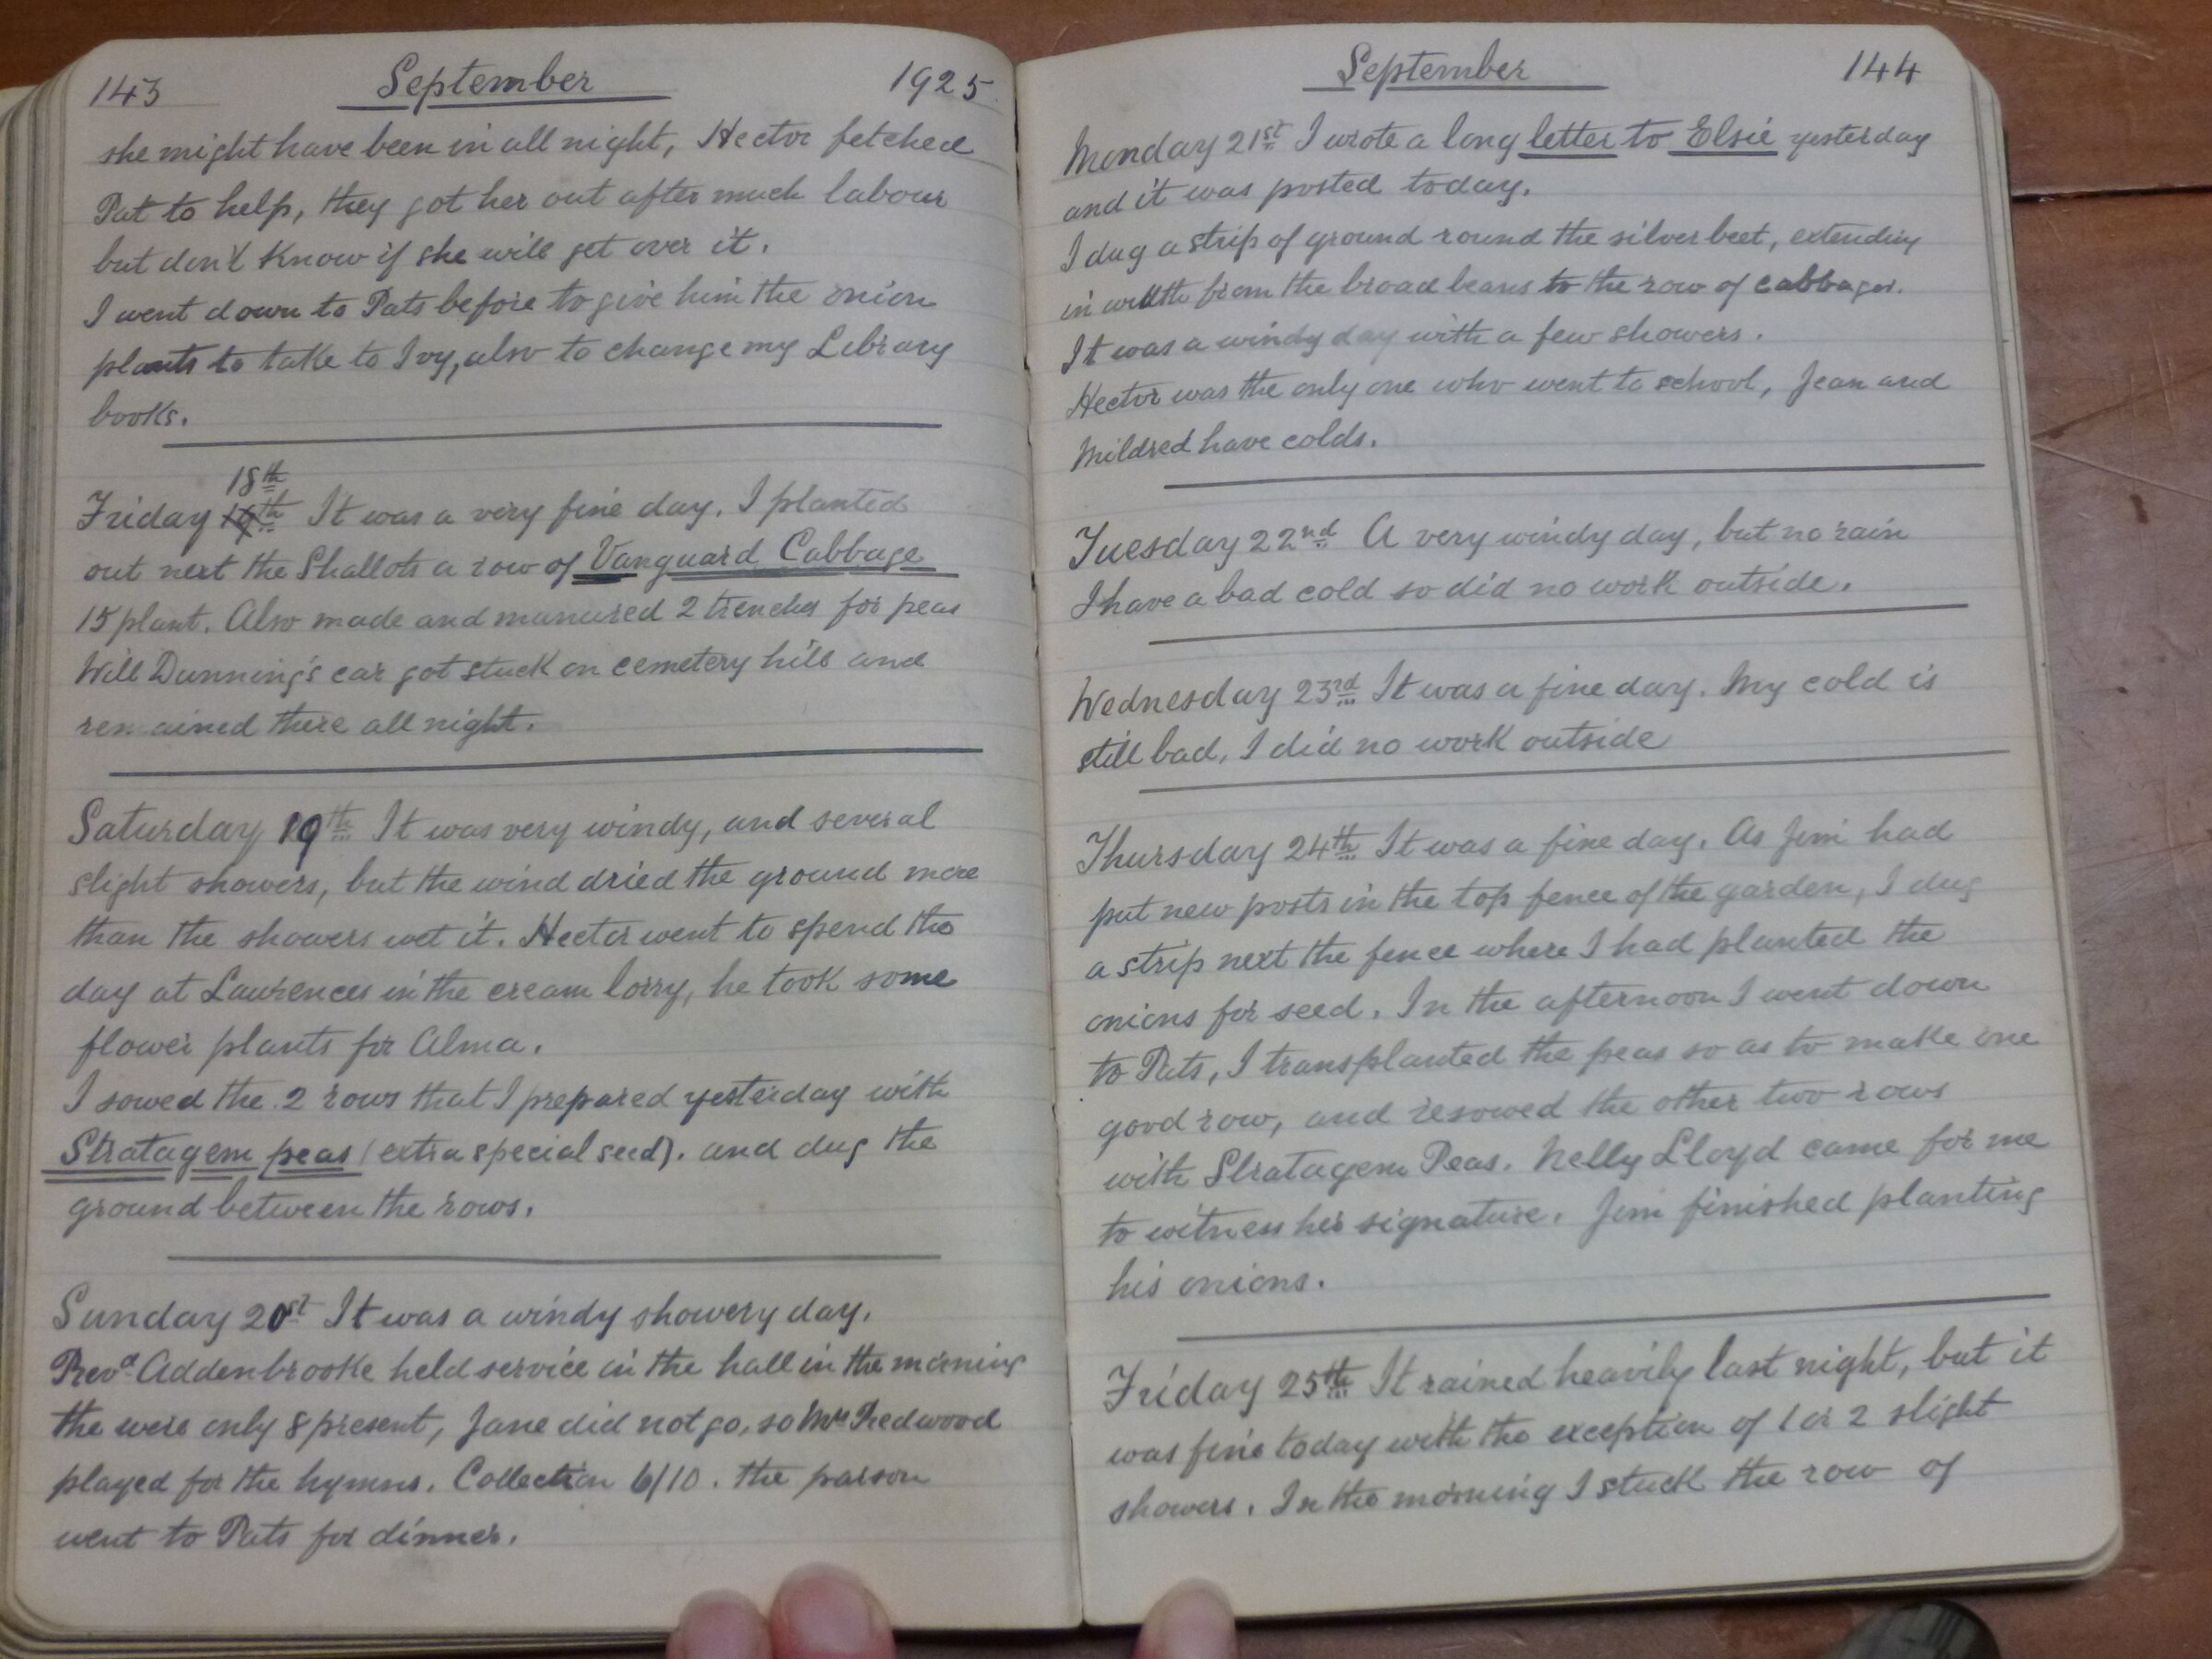 143 September 1925
she might have been in all night, Hector fetched
Pat to help, they got her out after much labour
but don't know if she will get over it.
I went down to Pats before to give him the onion
plants to take to Ivy, also to change my Library
books.
18th
Friday 19th It was a very fine day. I planted
out next the Shallots a row of Vanguard Cabbage
15 plant. Also made and manured 2 trenches for peas
Will Dunning's car got stuck on cemetery hill and
remained there all night.
Saturday 19th It was very windy, and several
slight showers, but the wind dried the ground more
than the showers wet it. Hector went to spend the
day at Laurences in the cream lorry, he took some
flower plants for Alma.
I sowed the 2 rows that I prepared yesterday with
Stratagem peas (extra special seed). and dug the
ground between the rows.
Sunday 20st It was a windy showery day.
Revd Addenbrooke held service in the hall in the morning
the were only 8 present, Jane did not go, so Mrs Redwood
played for the hymns. Collection 6/10. the parson
went to Pats for dinner.
September 144
Monday 21st I wrote a long letter to Elsie yesterday
and it was posted today.
I dug a strip of ground round the silver beet, extending
in width from the broad beans to the row of cabbages.
It was a windy day with a few showers.
Hector was the only one who went to school, Jean and
Mildred have colds.
Tuesday 22nd A very windy day, but no rain
I have a bad cold so did no work outside.
Wednesday 23rd It was a fine day. My cold is
still bad, I did no work outside
Thursday 24th It was a fine day. As Jim had
put new posts in the top fence of the garden, I dug
a strip next the fence where I had planted the
onions for seed. In the afternoon I went down
to Pats, I transplanted the peas so as to make one
good row, and resowed the other two rows
with Stratagem Peas. Nelly Lloyd came for me
to witness her signature. Jim finished planting
his onions.
Friday 25th It rained heavily last night, but it
was fine today with the exception of 1 or 2 slight
showers. In the morning I stuck the row of